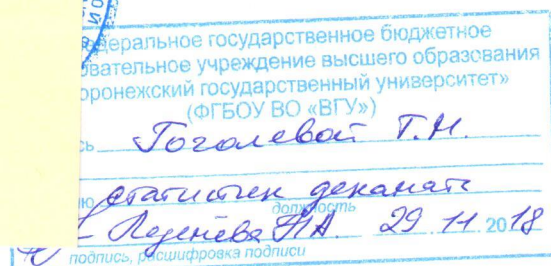 деральное государственное бюджетное
овательное учреждение высшего образования
оронежский государственный университет»
(ФГБОУ ВО «ВГУ»)
сь Гоголевой Т.Н.
ю статистик деканата
должность
29 11 2018
подпись, расшифровка подписи